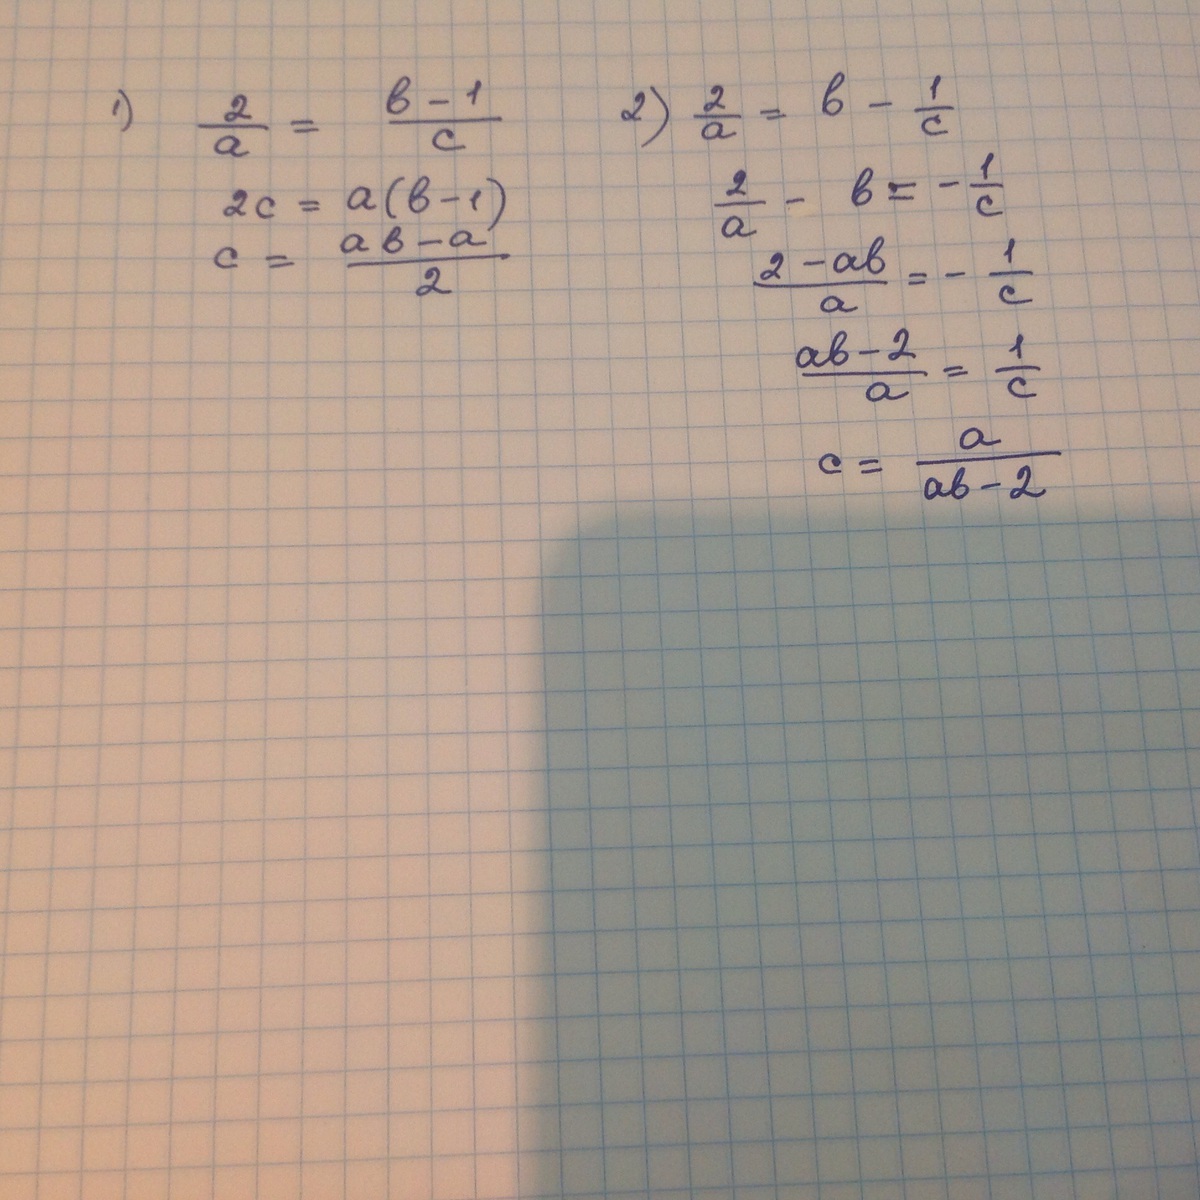 1) 2/a = (в - 1)/c
2c = a(в - 1)
c = (aв - a)/2
2) 2/a = в - 1/c
2/a - в = - 1/c
(2 - aв)/a = - 1/c
(aв - 2)/a = 1/c
c = a/(aв - 2)